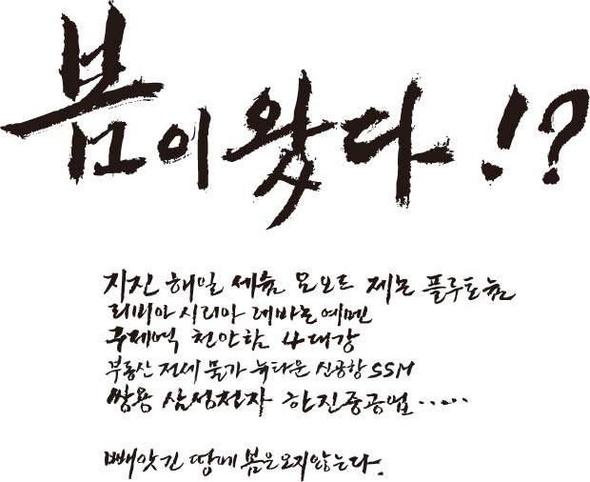 봄이왔다!?
지진 해일 세슘 요오드 제논 플루토늄
리비아 시리아 레바논 예멘
구제역 천안함 4대강
부동산 전세 물가 뉴타운 신공항 SSM
쌍용 삼성전자 한진중공업······
빼앗긴 땅에 봄은오지않는다.